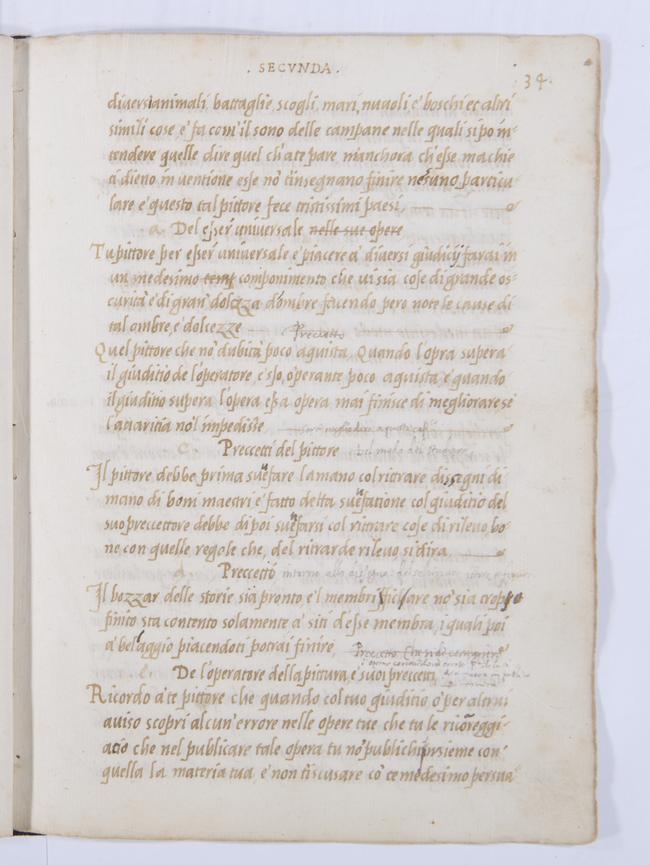 . SECVNDA .
34.
diversi animali, battaglie, scogli, mari, nuuoli e' boschi et altri
simili cose, e' fa com'il sono delle campane nelle quali si pò in-
tendere quelle dire quel ch'a te pare, m'anchora ch'esse machie
ti dieno inuentione esse nõ t'insegnano finire nesuno particu
lare e' questo tal pittore fece tristissimi paesi,
a. Del esser' universale nelle sue opere
Tu pittore per esser universale e' piacere a' diversi giudicij farai in
un medesimo componimento che ui sia cose di grande os-
curità e' di gran' dolcezza d'ombre facendo però note le cause di
tal ombre, e' dolcezze
Preccetto
Quel pittore che nõ dubita poco aquista, Quando l'opra supera
il giuditio de l'operatore, esso operante poco aquista, e' quando
il giuditio supera l'opera essa opera mai finisce di megliorare se
l'auaritia no'l impedisse
c. Preccetti del pittore
Il pittore debbe prima suefare la mano col ritrare dissegni di
mano di boni maestri e' fatto detta suefatione col giuditio del
suo preccettore debbe di poi suefarsi col ritrare cose di rilevo, bo-
ne con quelle regole che, del ritrar de rilevo si dira,
d. Preccettó
Il bozzar delle storie sia pronto e'l membrificare no' sia troppo
finito sta contento solamente a' siti d'esse membra, i quali poi
a' bel'aggio piacendoti potrai finire,
De l'operatore della pittura e' suoi preccetti
Ricordo a' te pittore che quando col tuo giuditio o' per altrui
auiso scopri alcun' errore nelle opere tue che tu le ricoreggi-
acio che nel publicare tale opera tu nõ publichi insieme con'
quella la materia tua, e' non ti scusare cõ te medesimo persua